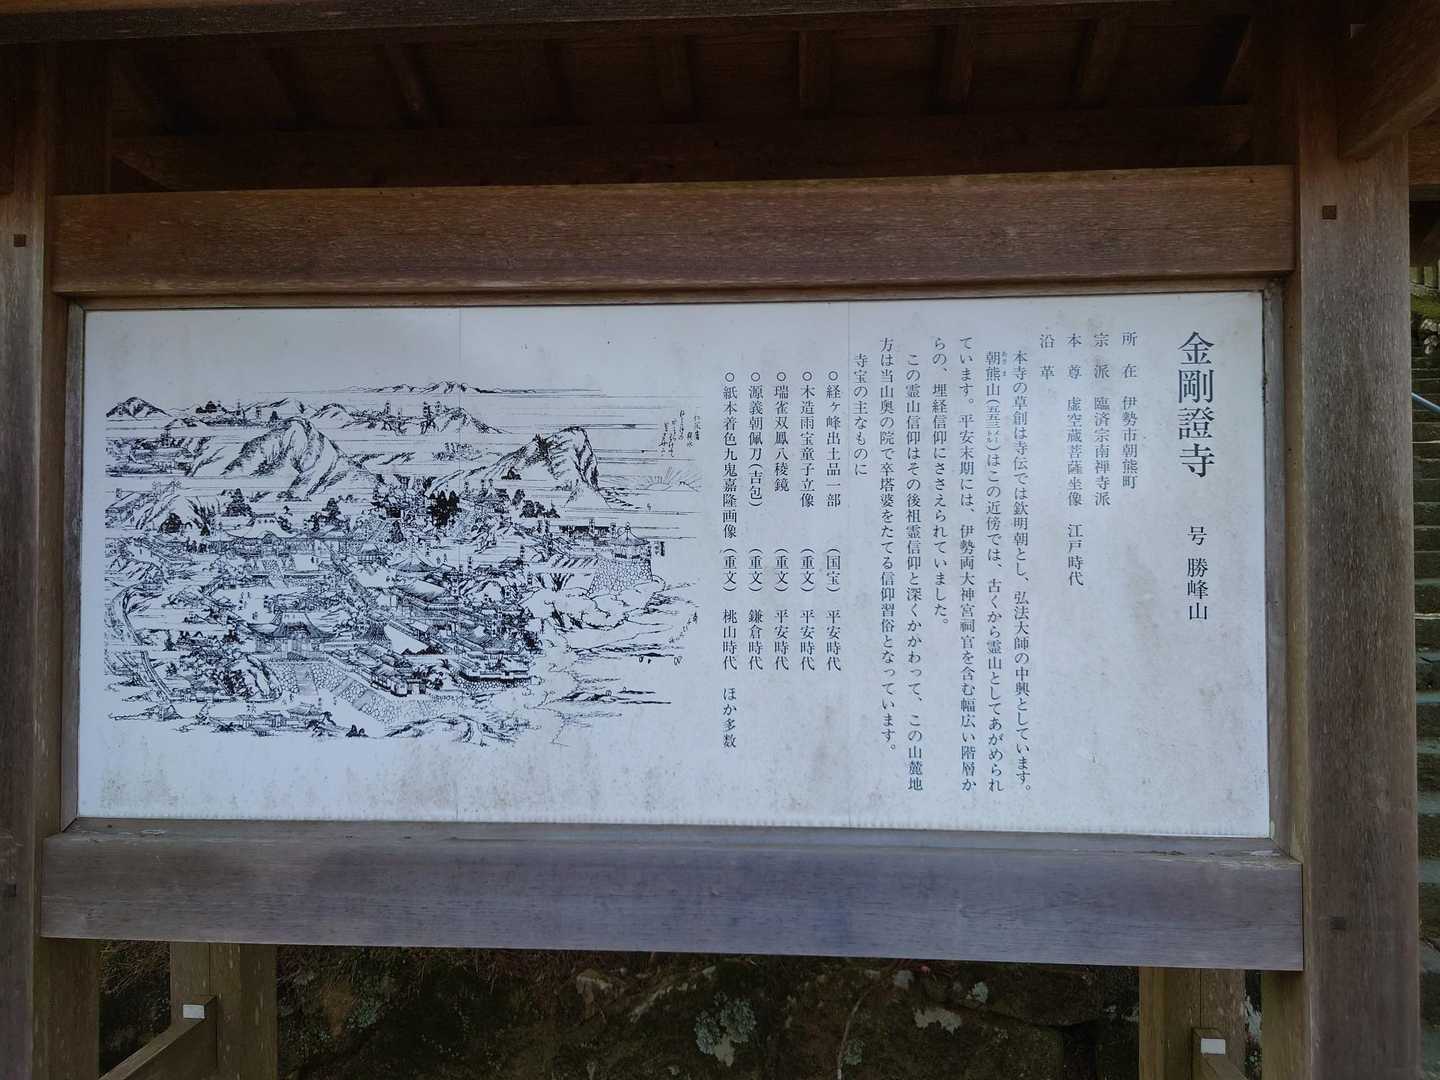 金剛證寺 号 勝峰山
所在 伊勢市朝熊町
宗派 臨済宗南禅寺派
本尊 虚空蔵菩薩坐像 江戸時代
沿革
本寺の草創は寺伝では欽明朝とし、弘法大師の中興としています。
朝熊山(五五三メートル)はこの近傍では、古くから霊山としてあがめられ
ています。平安末期には、伊勢両大神宮祠官を含む幅広い階層か
らの、埋経信仰にささえられていました。
この霊山信仰はその後祖霊信仰と深くかかわって、この山麓地
方は当山奥の院で卒塔婆をたてる信仰習俗となっています。
寺宝の主なものに
○経ヶ峰出土品一部 (国宝) 平安時代
○木造雨宝童子立像 (重文) 平安時代
○瑞雀双鳳八稜鏡 (重文) 平安時代
○源義朝佩刀(吉包) (重文) 鎌倉時代
○紙本着色九鬼嘉隆画像 (重文) 桃山時代 ほか多数